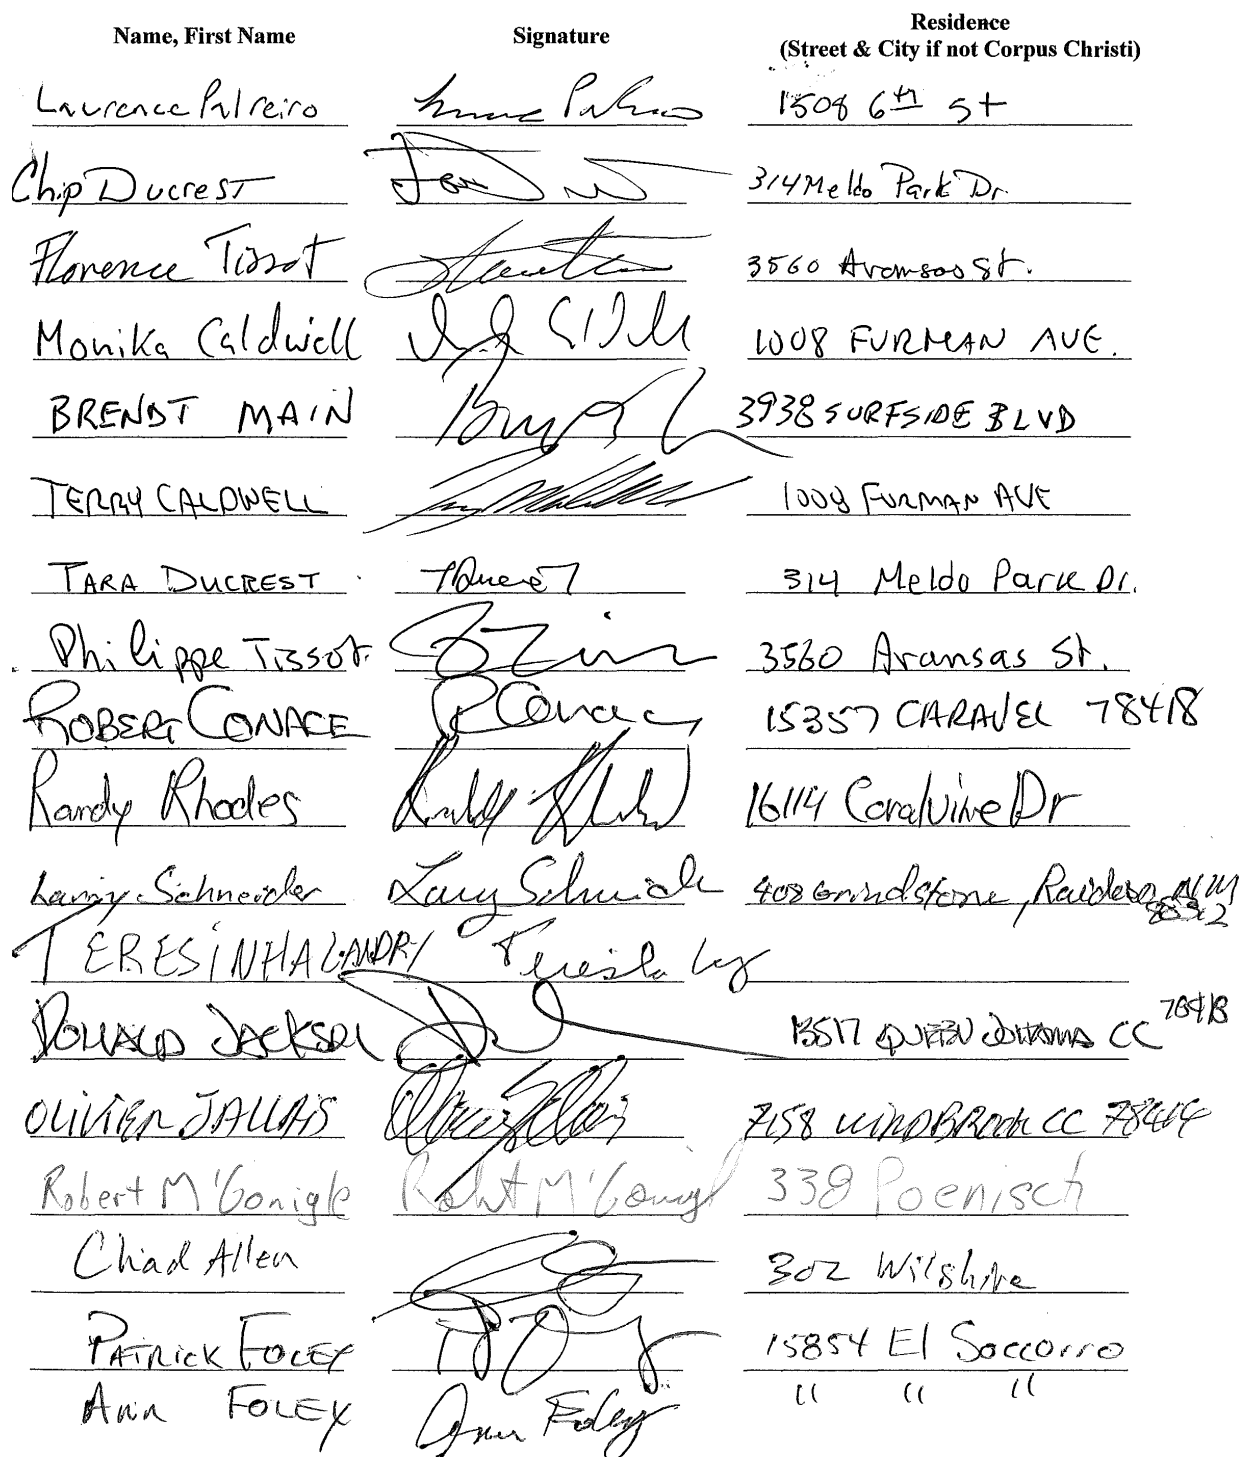 Name, First Name Signature Residence
(Street & City if not Corpus Christi)
Laurence Palreiro 1508 6th St
Chip Ducrest 314 Meldo Park Dr.
Florence Tissot 3560 Aransas St.
Monika Caldwell 1008 FURMAN AVE.
BRENDT MAIN 3938 SURFSIDE BLVD
TERRY CALDWELL 1008 FURMAN AVE
TARA DUCREST TDucrest 314 Meldo Park Dr.
Philippe Tissot 3560 Aransas St.
ROBERT CONACE RConace 15357 CARAVEL 78418
Randy Rhodes 16114 Coralvine Dr
Larry Schneider Larry Schneider 408 Grindstone, Ruidoso NM
TERESINHA LANDRY
DONALD JACKSON 13517 QUEEN JOHANNA CC 78418
OLIVIER JALLAIS 7158 WINDBROOK CC 78414
Robert McGonigle Robert McGonigl 338 Poenisch
Chad Allen 302 Wilshire
PATRICK FOLEY 15854 El Soccorro
Ann FOLEY Ann Foley " " "